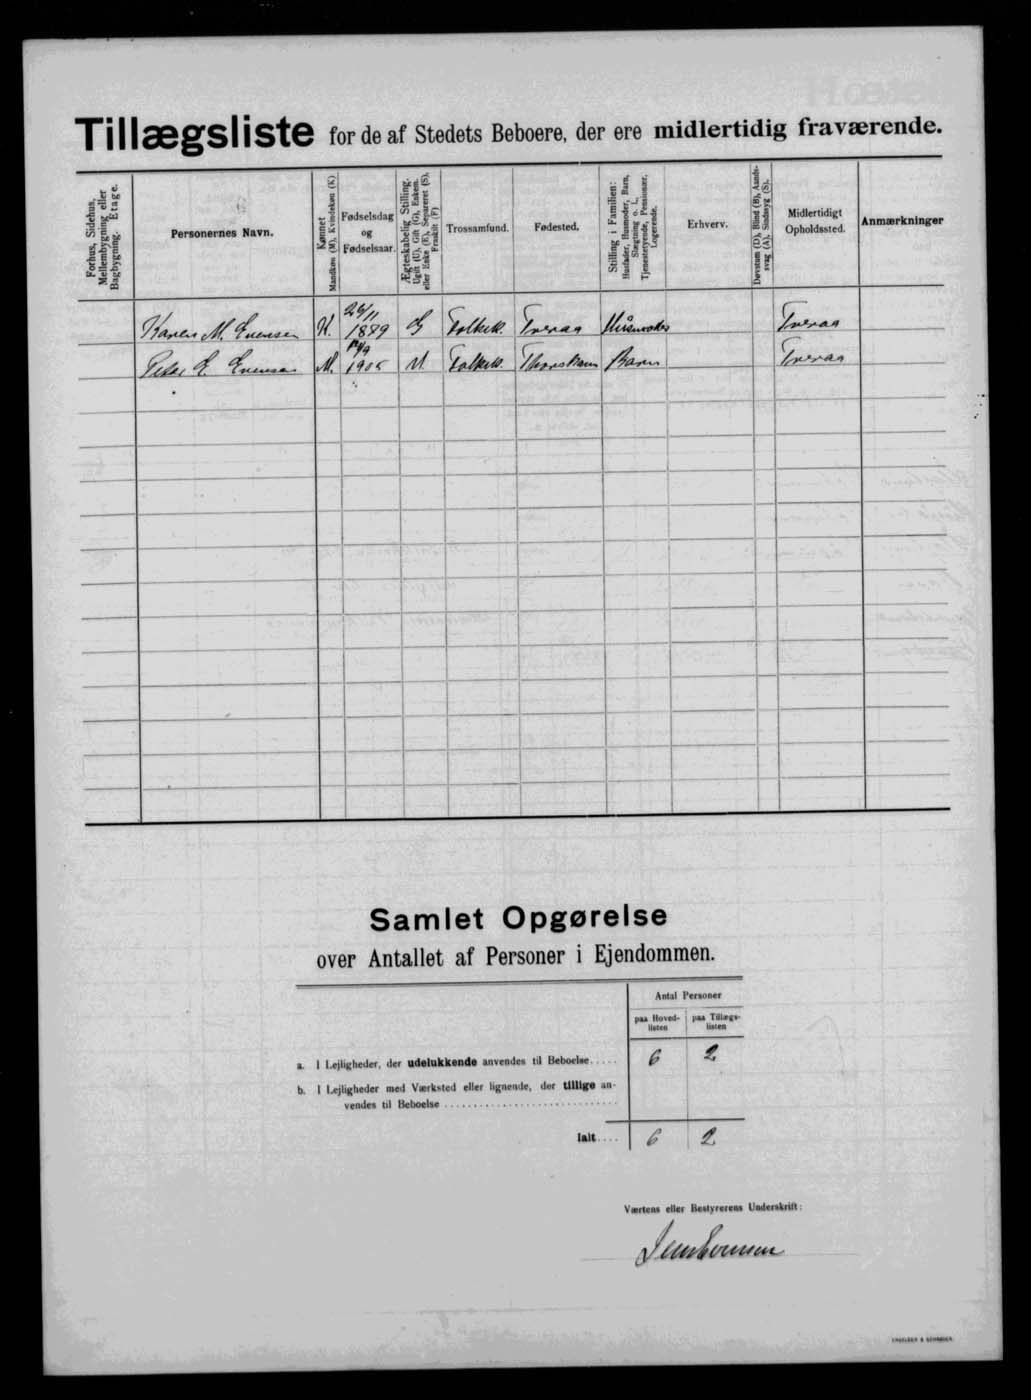 Tillægsliste for de af Stedets Beboere, der ere midlertidig fraværende.
Forhus, Sidehus, Mellembygning eller Bagbygning. Etage.
Personernes Navn.
Kønnet Mandkøn (M), Kvindekøn (K)
Fødselsdag og Fødselsaar.
Ægteskabelig Stilling. Ugift (U), Gift (G), Enkem. eller Enke (E), Separeret (S), Fraskilt (F)
Trossamfund.
Fødested.
Stilling i Familien: Husfader, Husmoder, Barn, Slægtning o. l., Tjenestetyende, Pensionær, Logerende.
Erhverv.
Døvstum (D), Blind (B), Aandssvag (A), Sindssyg (S).
Midlertidigt Opholdssted.
Anmærkninger
26/11
Karen M. Evensen K. 1889 G Folkek. Tveraa Husmoder Tveraa
Peter E. Evensen M. 1905 U. Folkek. Thorshavn Barn Tveraa
Samlet Opgørelse
over Antallet af Personer i Ejendommen.
Antal Personer
paa Hoved-listen paa Tillægs-listen
a. I Lejligheder, der udelukkende anvendes til Beboelse..... 6 2
b. I Lejligheder med Værksted eller lignende, der tillige an-
vendes til Beboelse
Ialt.... 6 2
Værtens eller Bestyrerens Underskrift: